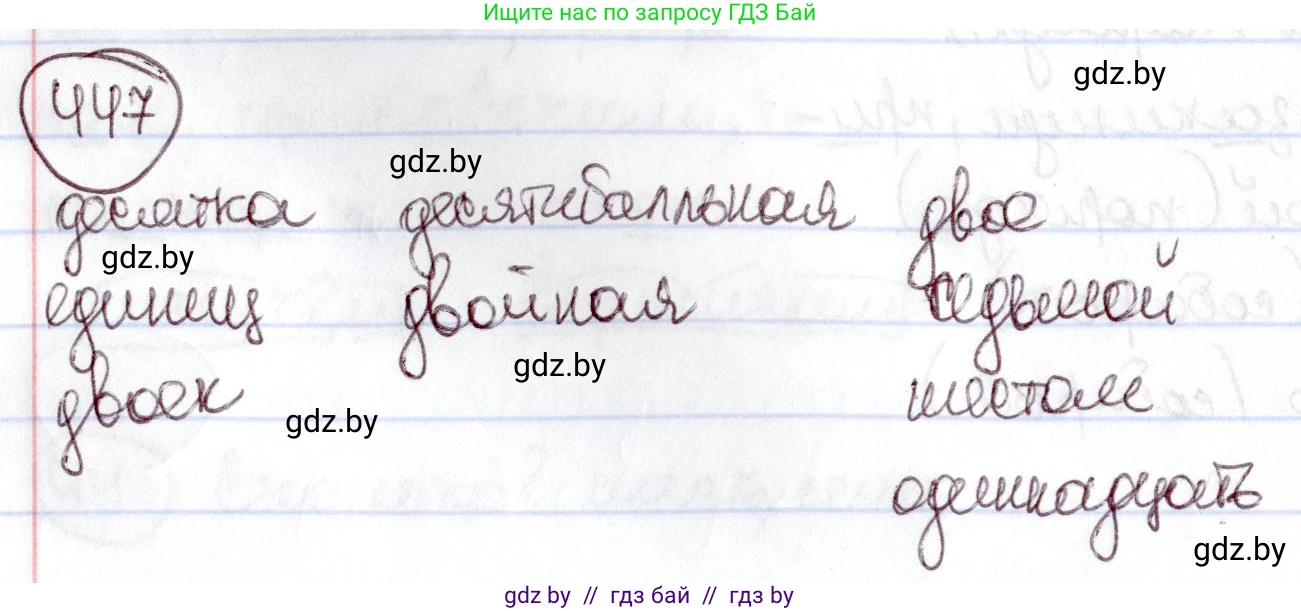 Ищите нас по запросу ГДЗ Бай
gdz.by
447
gdz.by
десятка десятибалльная двое
gdz.by
единиц двойная седьмой
gdz.by
двоек шестом
gdz.by
одиннадцать
gdz.by
gdz by // гдз бай // гдз by